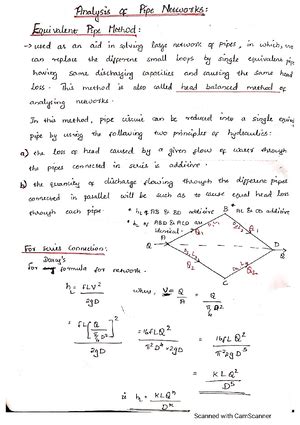 Analysis of Pipe Networks:
Equivalent Pipe Method:
→ used as an aid in solving large network of pipes, in which, we
can replace the different small loops by single equivalent pipe
having same discharging capacities and causing the same head
loss. This method is also called head balanced method of
analysing networks.
In this method, pipe circuit can be reduced into a single equiv
pipe by using the following two principles of hydraulics:
a) the loss of head caused by a given flow of water through
the pipes connected in series is additive.
b) the quantity of discharge flowing through the different pipes
connected in parallel will be such as to cause equal head loss
through each pipe.
* hL of AB & BD additive
* AC & CD additive
* hL of ABD & ACD are
identical.
A
B
C
D
Q
Q
Q1
Q1
Q2
For Series Connection:
Darcy's
For formula for network.
hL = fLV²/2gD
where, V = Q/A = Q/(π/4 D²)
= fL[Q/(π/4 D²)]²/2gD
= 16fLQ²/π²D⁴×2gD
= 16fLQ²/π²2gD⁵
= KLQ²/D⁵
hL = KLQⁿ/Dᵐ
Scanned with CamScanner